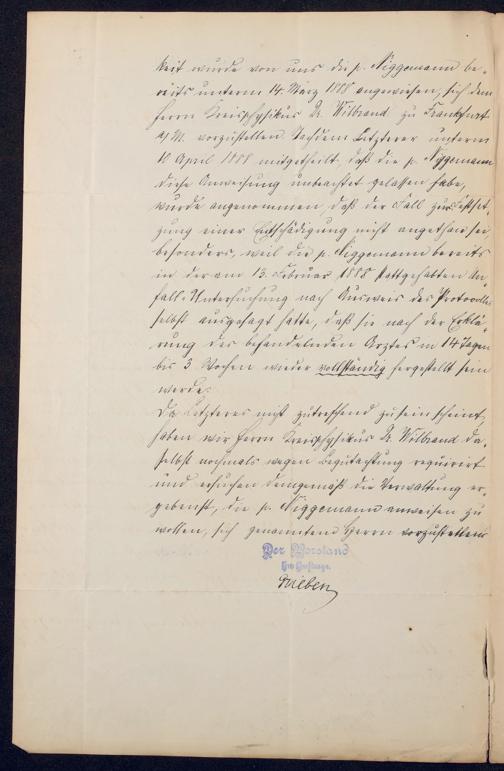 keit wurde von uns die p. Niggemann be-
reits unterm 14. März 1888 angewiesen, sich dem
Herrn Kreisphysikus Dr Wilbrand zu Frankfurt
a/M. vorzustellen. Nachdem Letzterer unterm
10 April 1888 mitgetheilt, daß die p. Niggemann
diese Anweisung unbeachtet gelassen habe,
wurde angenommen, daß der Fall zur Festset-
zung einer Entschädigung nicht angethan sei
besonders, weil die p. Niggemann bereits
in der am 13. Februar 1888 stattgehabten Un-
fall-Untersuchung nach Ausweis des Protocolles
selbst ausgesagt hatte, daß sie nach der Erklä-
rung des behandelnden Arztes in 14 Tagen
bis 3 Wochen wieder vollständig hergestellt sein
werde.
Da Letzteres nicht zutreffend zu sein scheint,
haben wir Herrn Kreisphysikus Dr Wilbrand da-
selbst nochmals wegen Begutachtung requirirt
und ersuchen demgemäß die Verwaltung er-
gebenst, die p. Niggemann anweisen zu
wollen, sich genanntem Herrn vorzustellen.
Der Vorstand